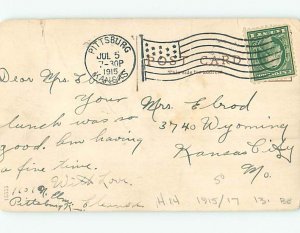 PITTSBURG
JUL 5
7-30P
1915
KANSAS
POST CARD
Dear Mrs. E
Your
lunch was so
good. Am having
a fine time.
With Love.
Pittsburg
Mrs. Elrod
3740 Wyoming
Kansas City
Mo.
H14 1915/17 13. BE